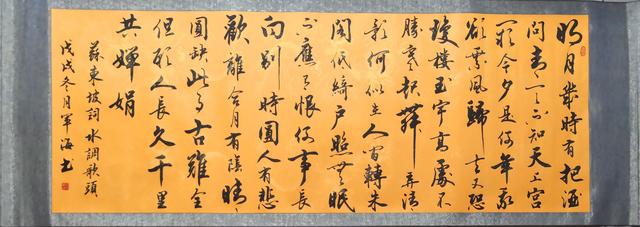 明月幾時有把酒
問青天不知天上宮
闕今夕是何年我
欲乘風歸去又恐
瓊樓玉宇高處不
勝寒起舞弄清
影何似在人間轉朱
閣低綺戶照無眠
不應有恨何事長
向別時圓人有悲
歡離合月有陰晴
圓缺此事古難全
但願人長久千里
共嬋娟
蘇東坡詞水調歌頭
戊戌冬月軍海書